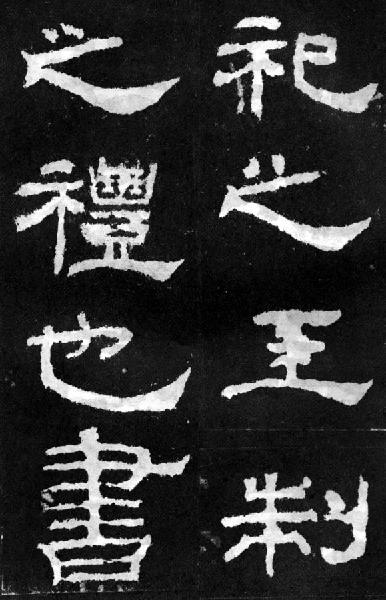 祀之王制
之禮也書